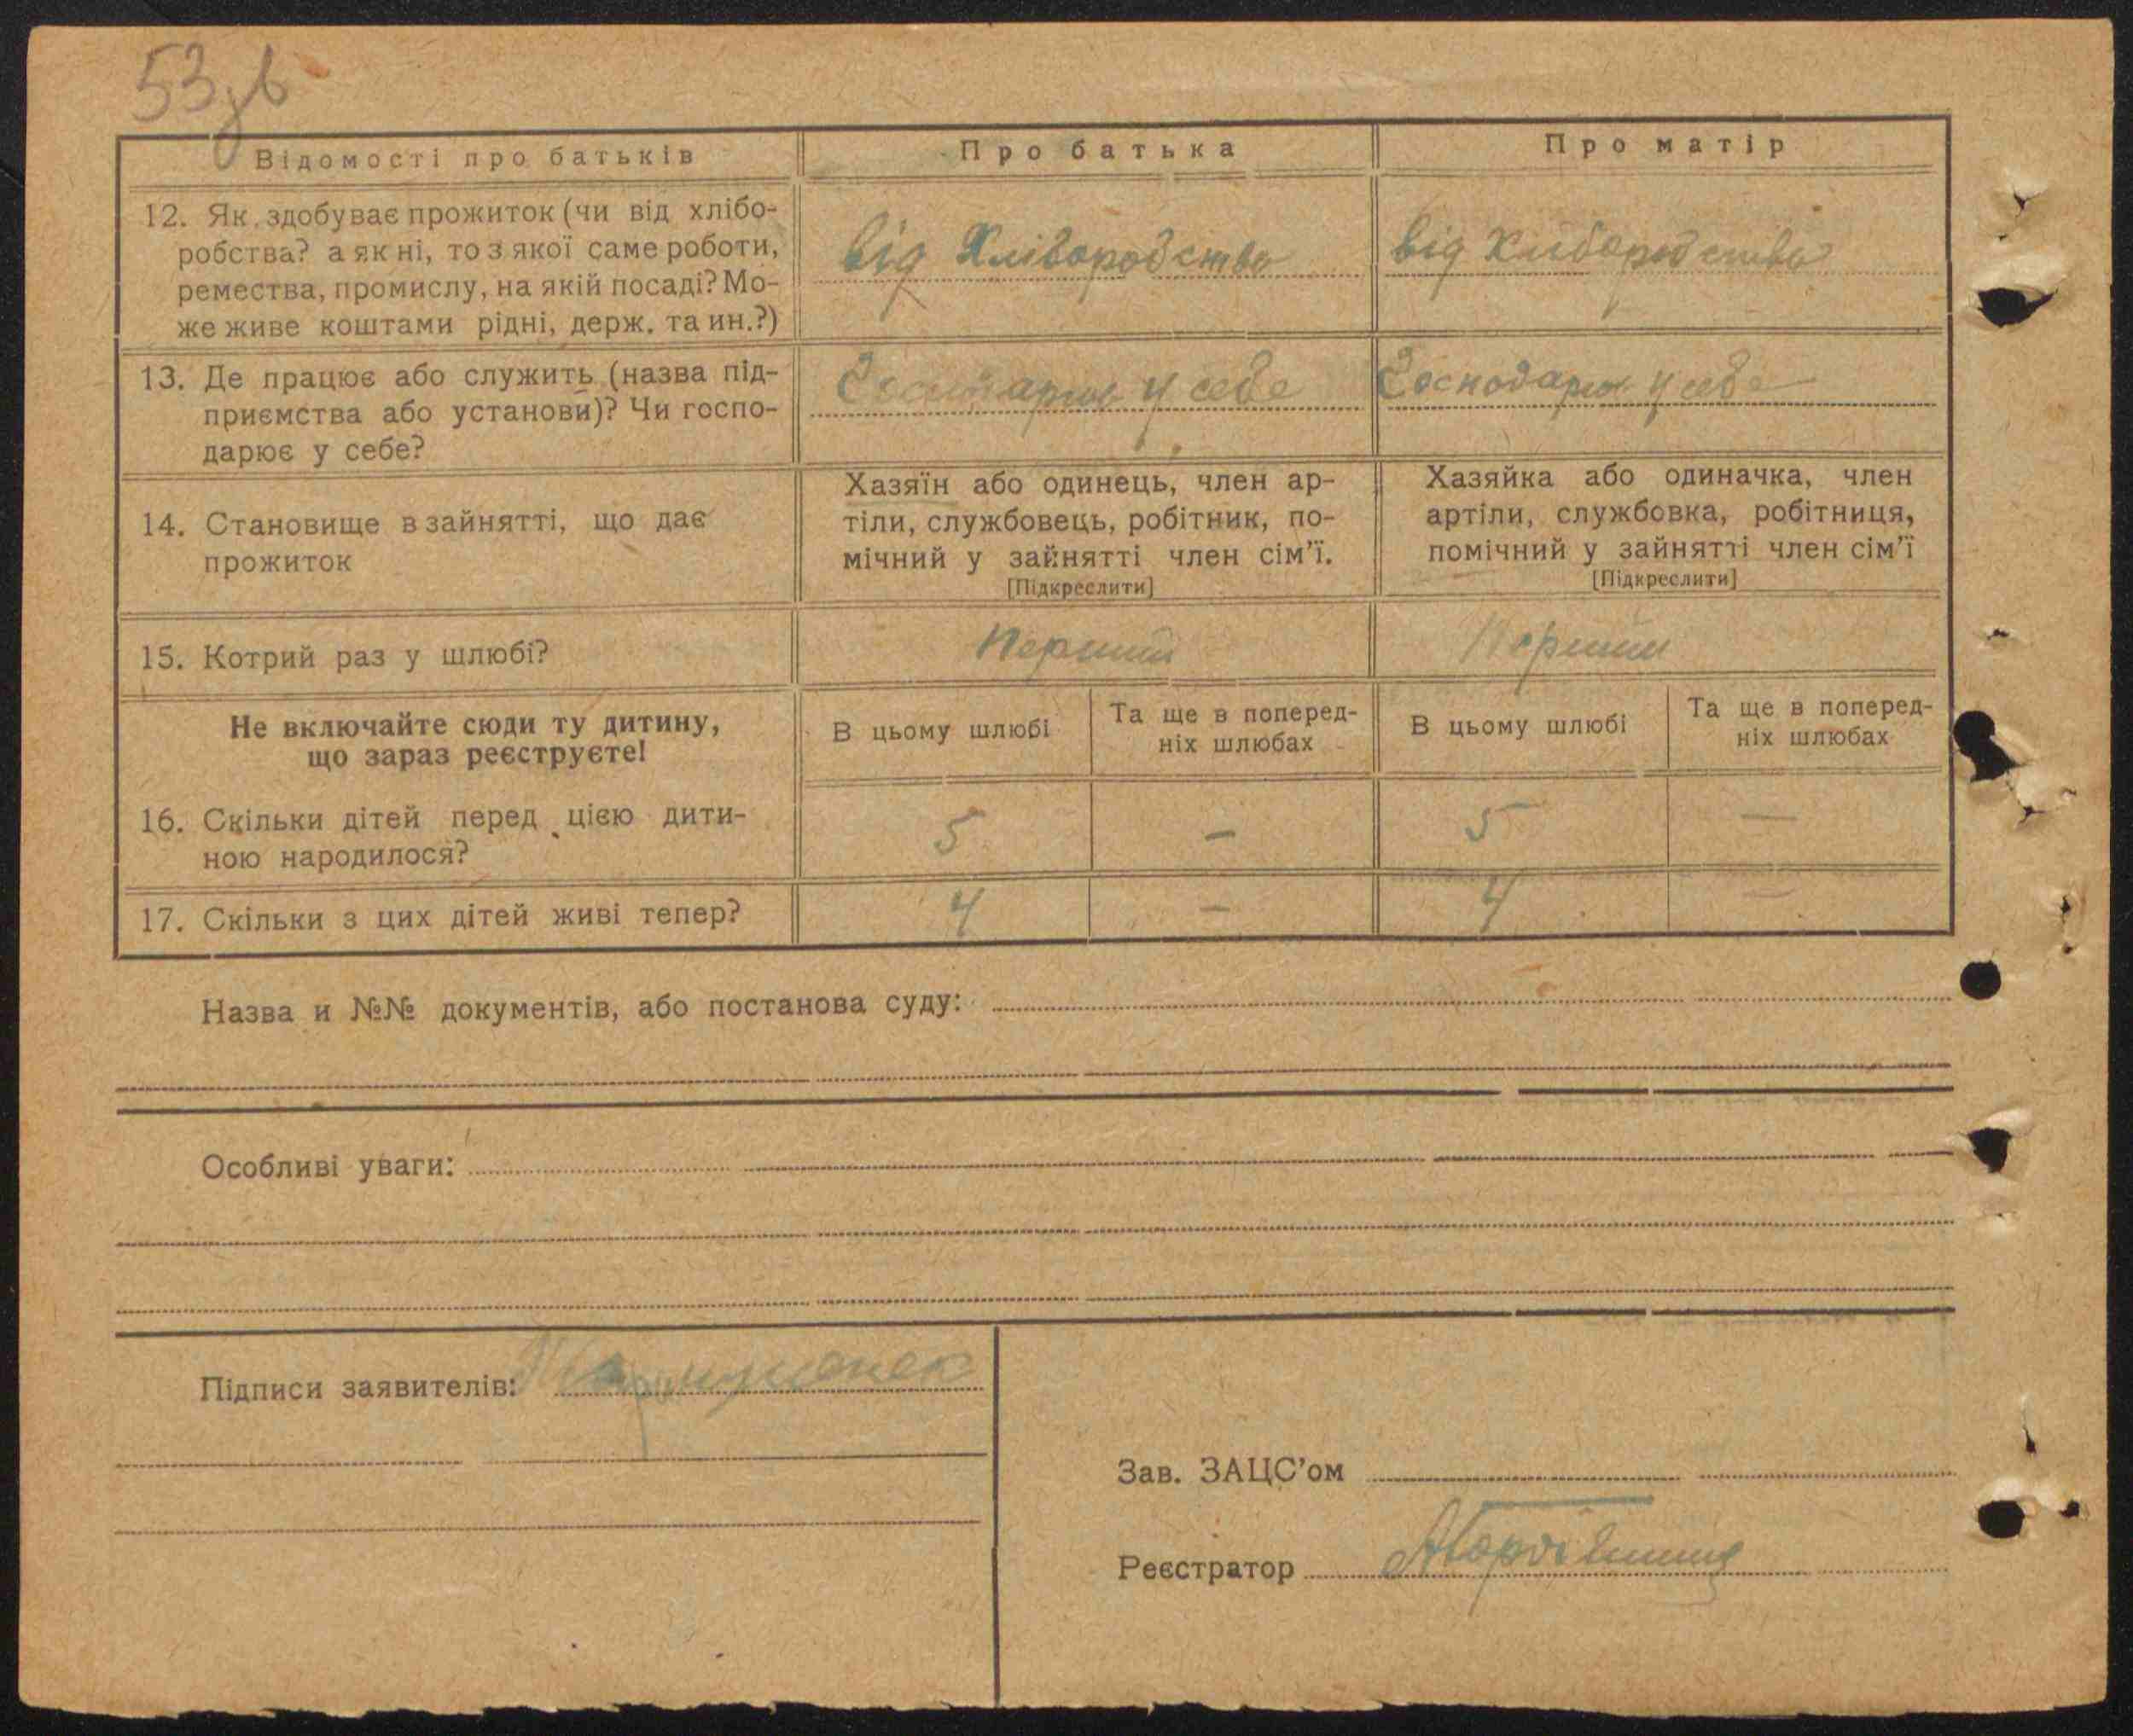 53зв
Відомості про батьків
Про батька
Про матір
12. Як здобуває прожиток (чи від хлібо-
робства? а як ні, то з якої саме роботи,
ремества, промислу, на якій посаді? Мо-
же живе коштами рідні, держ. та ин.?)
від Хліборобства
від Хліборобства
13. Де працює або служить (назва під-
приємства або установи)? Чи госпо-
дарює у себе?
у себе
у себе
14. Становище в зайнятті, що дає
прожиток
Хазяїн або одинець, член ар-
тіли, службовець, робітник, по-
мічний у зайнятті член сім’ї.
[Підкреслити]
Хазяйка або одиначка, член
артіли, службовка, робітниця,
помічний у зайнятті член сім’ї
[Підкреслити]
15. Котрий раз у шлюбі?
Перший
Перший
Не включайте сюди ту дитину,
що зараз реєструєте!
В цьому шлюбі
Та ще в поперед-
ніх шлюбах
В цьому шлюбі
Та ще в поперед-
ніх шлюбах
16. Скільки дітей перед цією дити-
ною народилося?
5 – 5 –
17. Скільки з цих дітей живі тепер?
4 – 4 –
Назва и №№ документів, або постанова суду:
Особливі уваги:
Підписи заявителів:
Зав. ЗАЦС’ом
Реєстратор